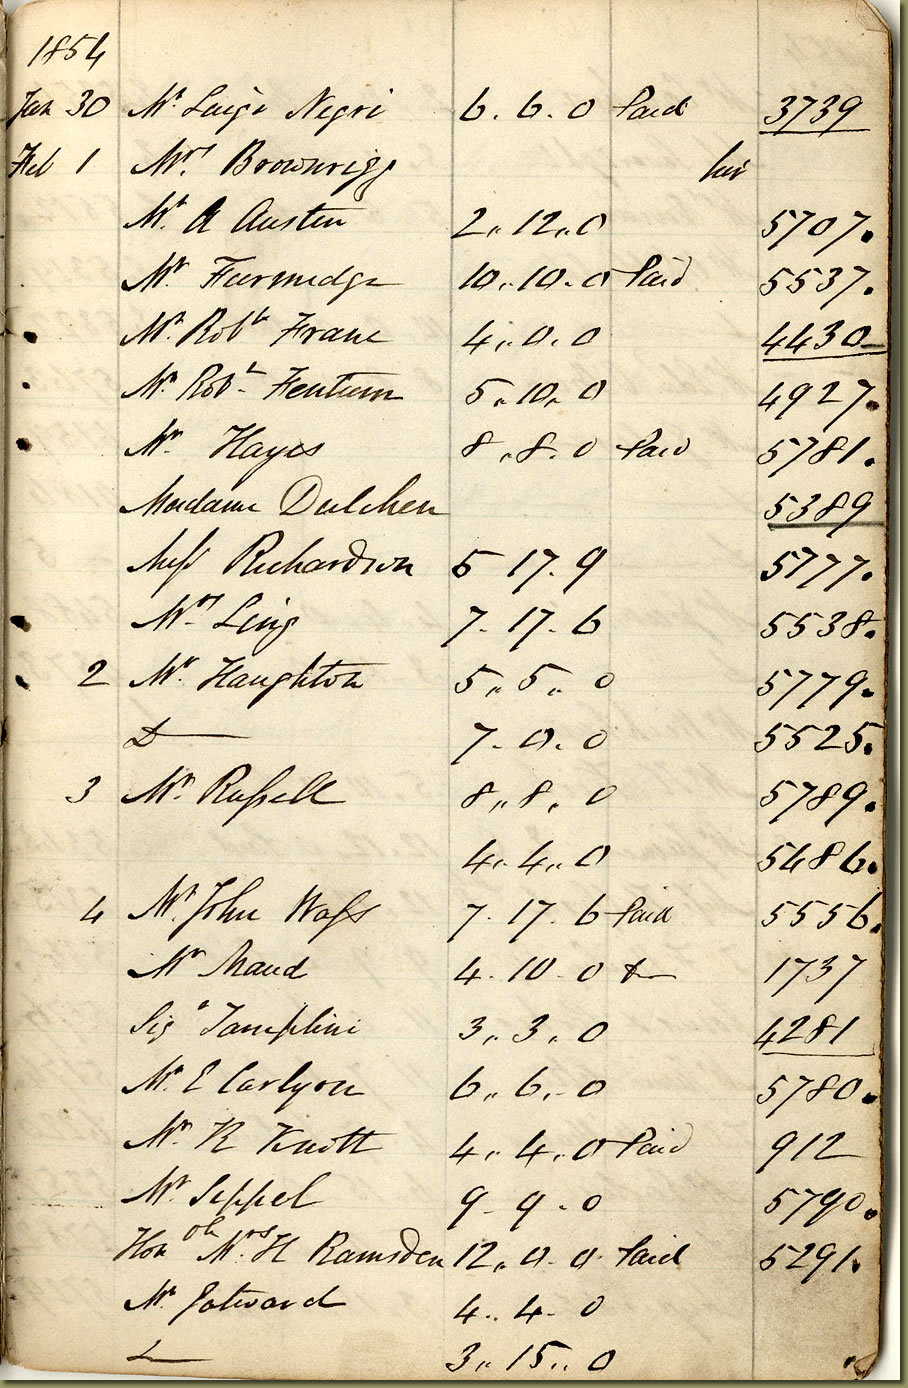 1854
Jan 30 Mr Luigi Negri 6. 6. 0 Paid 3739
Feb 1 Mrs Brownrigg
Mr A Austen 2,, 12,, 0 5707.
Mr Furmidge 10,, 10. 0 Paid 5537.
Mr Robt 4,, 0. 0 4430
Mr Robt Fentum 5,, 10,, 0 4927.
Mr Hayes 8,, 8. 0 Paid 5781.
Madame Dulcken 5389
Miss Richardson 5 17. 9 5777.
Mrs Ling 7. 17. 6 5538.
2 Mr Haughton 5,, 5,, 0 5779.
Do 7. 0. 0 5525.
3 Mr Russell 8,, 8,, 0 5789.
4,, 4,, 0 5486.
4 Mr John Wass 7. 17. 6 Paid 5556.
Mr Maud 4. 10. 0 Do 1737
Sigr Tamplini 3,, 3,, 0 4281
Mr E Carlyon 6,, 6,, 0 5780.
Mr R Knott 4,, 4,, 0 Paid 912
Mr Seppel 9. 9. 0 5790.
Honble Mrs H Ramsden 12,, 0. 0 Paid 5291.
Mr Gatward 4.. 4. 0
Do 3,, 15,, 0